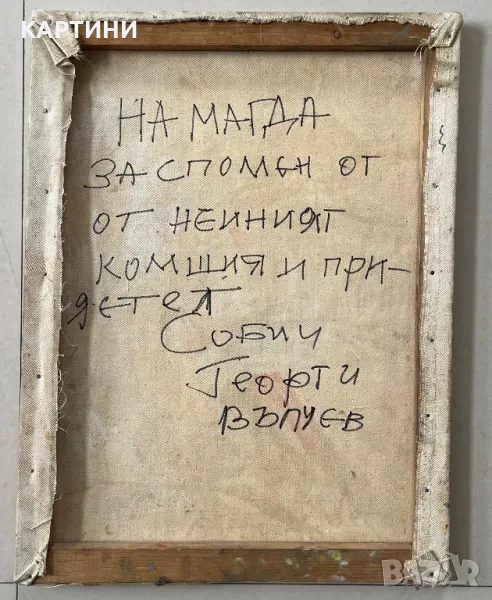 КАРТИНИ
НА МАГДА
ЗА СПОМЕН ОТ
ОТ НЕИНИЯТ
КОМШИЯ И ПРИ-
ЯТЕЛ
СОБИЧ
ГЕОРГИ
ВЪЛЧЕВ
BAZAR